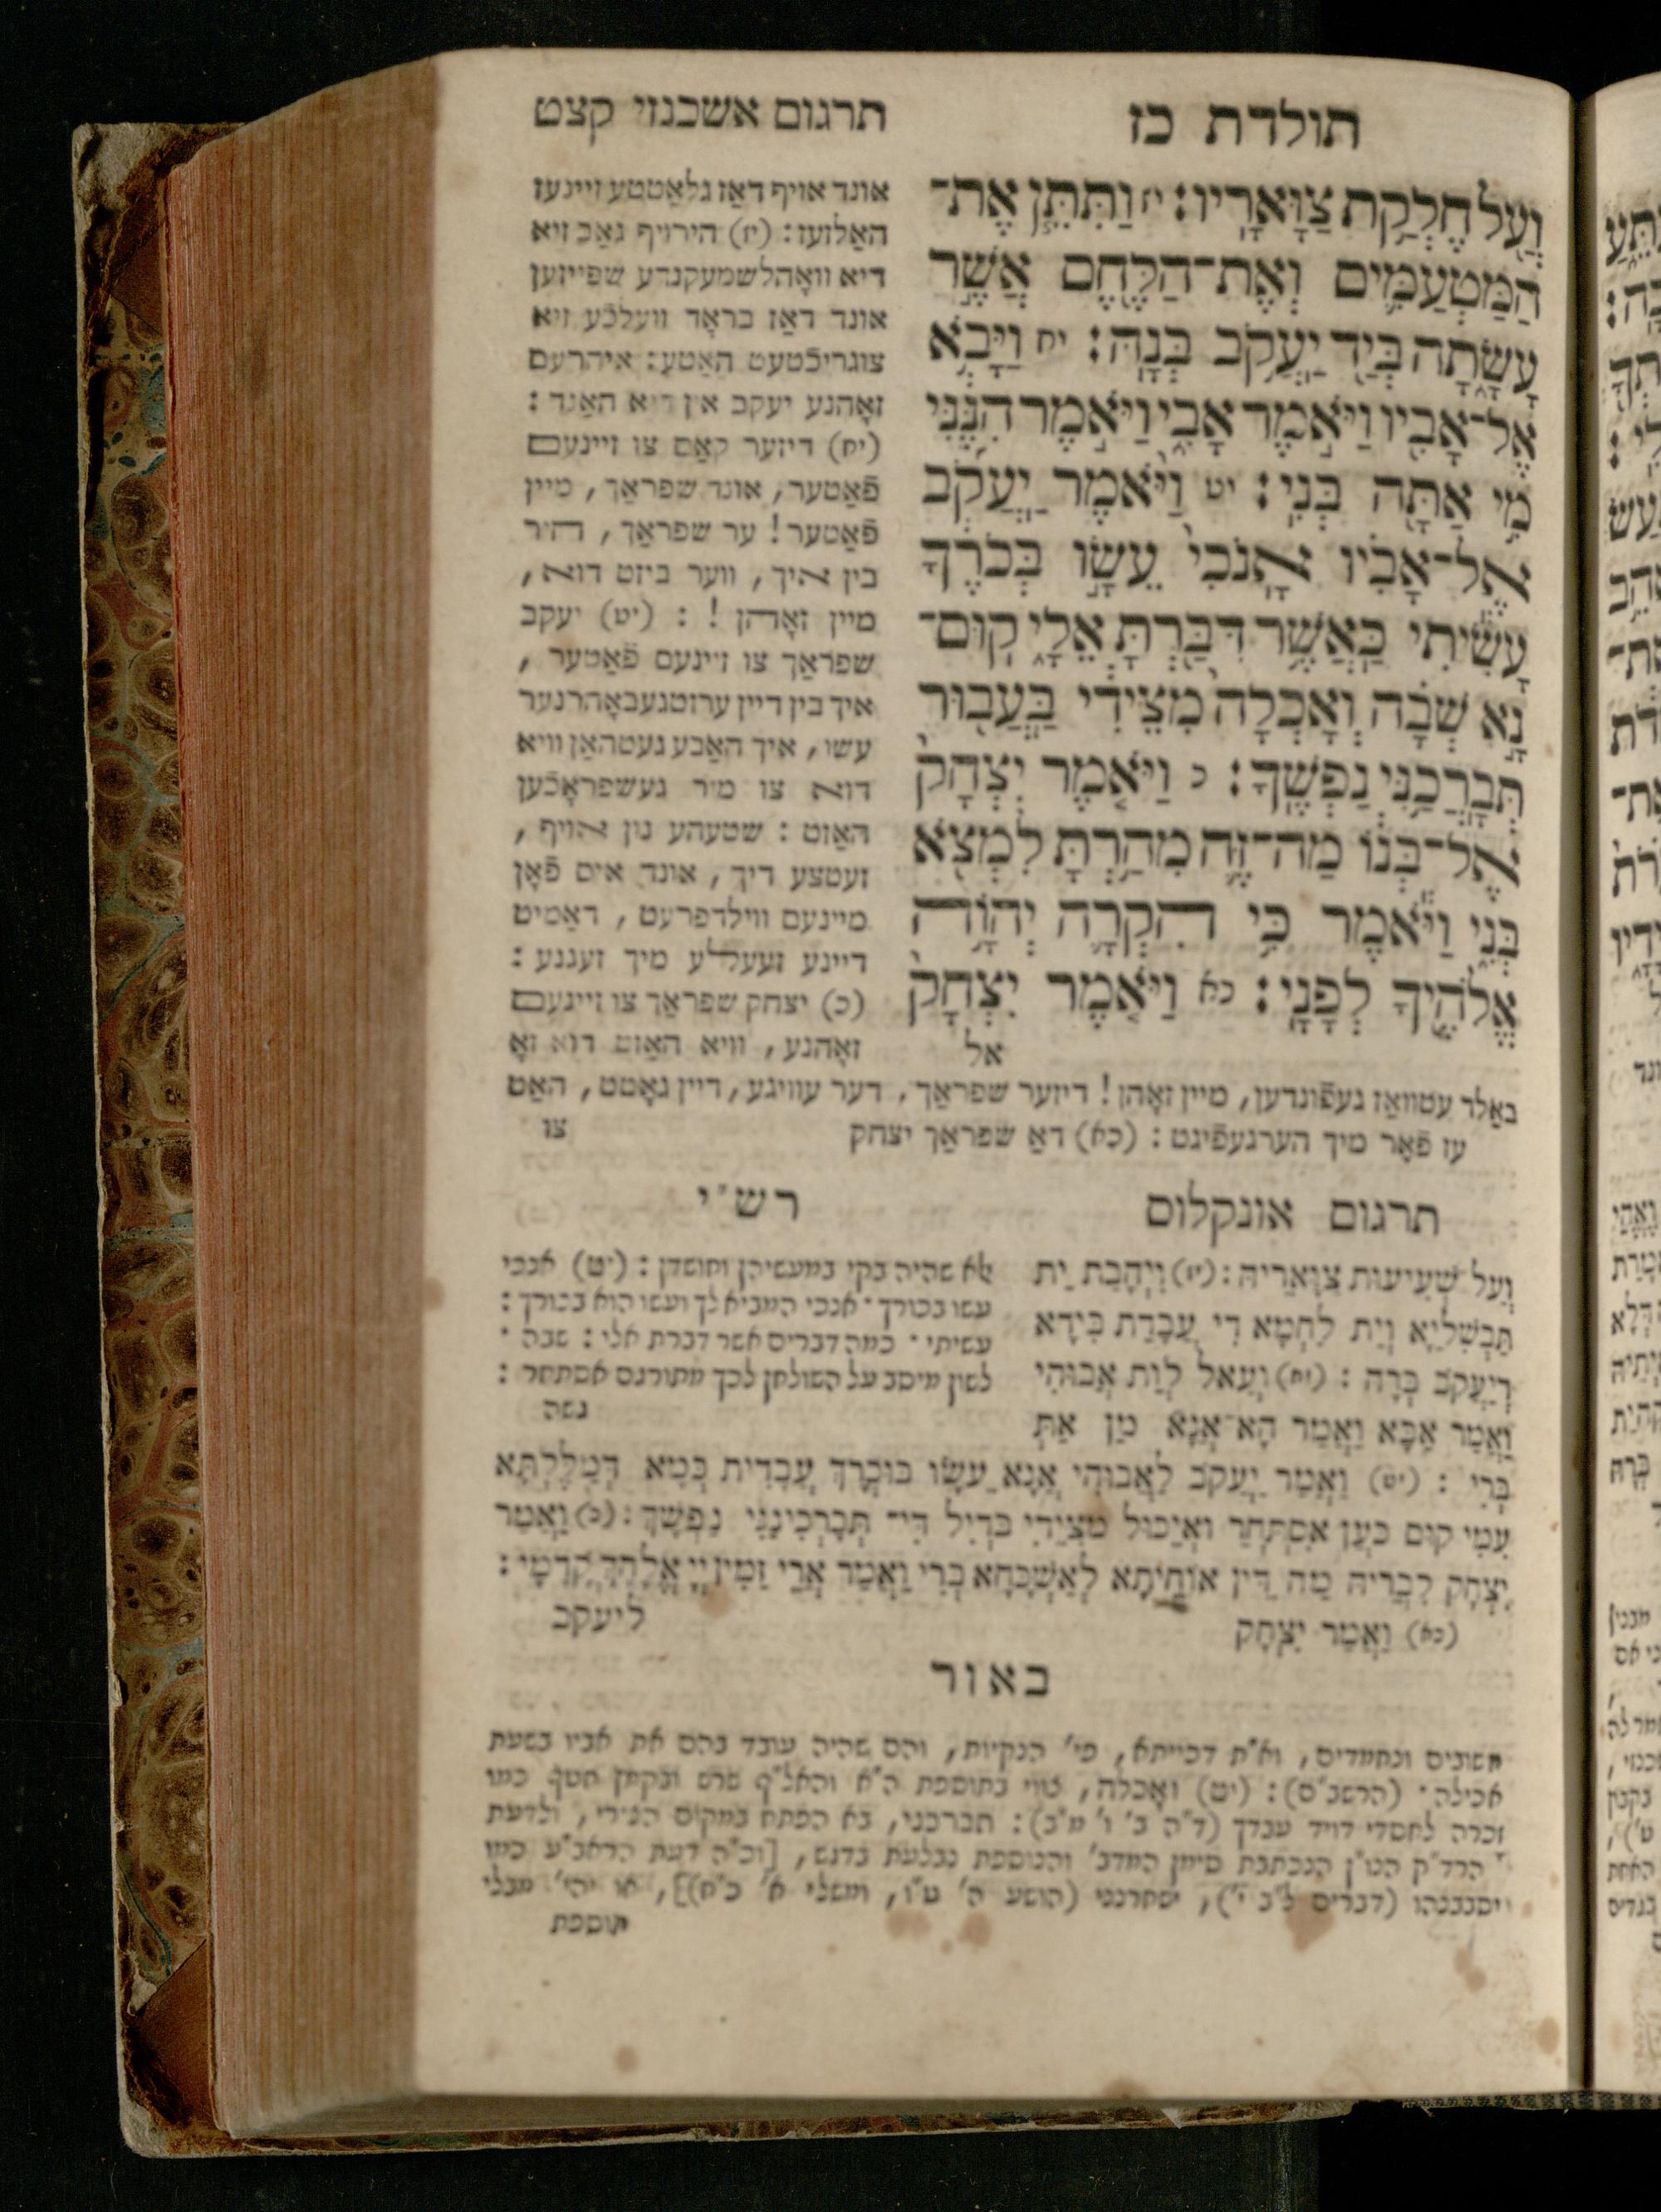 תולדת כז
תרגום אשכנזי קצט
וְעַ֖ל חֶלְקַ֥ת צַוָּארָֽיו׃ יז וַתִּתֵּ֧ן אֶת־
הַמַּטְעַמִּ֛ים וְאֶת־הַלֶּ֖חֶם אֲשֶׁ֣ר
עָשָׂ֑תָה בְּיַ֖ד יַֽעֲקֹ֥ב בְּנָֽהּ׃ יח וַיָּבֹ֥א
אֶל־אָבִ֖יו וַיֹּ֣אמֶר אָבִ֑י וַיֹּ֣אמֶר הִנֶּ֔נִּי
מִ֥י אַתָּ֖ה בְּנִֽי׃ יט וַיֹּ֨אמֶר יַֽעֲקֹ֜ב
אֶל־אָבִ֗יו אָֽנֹכִי֙ עֵשָׂ֣ו בְּכֹרֶ֔ךָ
עָשִׂ֕יתִי כַּֽאֲשֶׁ֥ר דִּבַּ֖רְתָּ אֵלָ֑י קֽוּם־
נָ֣א שְׁבָ֗ה וְאָכְלָה֙ מִצֵּידִ֔י בַּֽעֲב֖וּר
תְּבָֽרֲכַ֥נִּי נַפְשֶֽׁךָ׃ כ וַיֹּ֤אמֶר יִצְחָק֙
אֶל־בְּנ֔וֹ מַה־זֶּ֛ה מִהַ֥רְתָּ לִמְצֹ֖א
בְּנִ֑י וַיֹּ֕אמֶר כִּ֥י הִקְרָ֛ה יְהֹוָ֥ה
אֱלֹהֶ֖יךָ לְפָנָֽי׃ כא וַיֹּ֤אמֶר יִצְחָק֙
אל
אונד אויף דאַז גלאַטטע זיינעז
האַלזעז: (יז) הירויף גאַב זיא
דיא וואָהלשמעקנדע שפייזען
אונד דאַז בראָד וועלכֿע זיא
צוגריכֿטעט האַטע: איהרעם
זאָהנע יעקב אין דיא האַנד:
(יח) דיזער קאַם צו זיינעם
פֿאַטער, אונד שפראַך, מיין
פֿאַטער! ער שפראַך, היר
בין איך, ווער ביזט דוא,
מיין זאָהן!: (יט) יעקב
שפראַך צו זיינעם פֿאַטער,
איך בין דיין ערזטגעבאָהרנער
עשו, איך האַבע געטהאַן וויא
דוא צו מיר געשפראָכֿען
האַזט: שטעהע נון אויף,
זעטצע דיך, אונד איס פֿאָן
מיינעם ווילדפרעט, דאַמיט
דיינע זעעלע מיך זעגנע:
(כ) יצחק שפראַך צו זיינעם
זאָהנע, וויא האַזט דוא זאָ
באַלד עטוואַז געפֿונדען, מיין זאָהן! דיזער שפראַך, דער עוויגע, דיין גאָטט, האַט
עז פֿאָר מיך הערגעפֿיגט: (כא) דאַ שפראַך יצחק
צו
תרגום אונקלוס
וְעַל שְׁעִיעוּת צַוְּארֵיהּ: (יז) וִיהָבַת יַת
תַּבְשִׁילַיָּא וְיַת לַחְמָא דִּי עֲבָדַת בִּידָא
דְיַעֲקֹב בְּרַהּ: (יח) וְעָאל לְוָת אֲבוּהִי
וַאֲמַר אַבָּא וַאֲמַר הָא־אֲנָא מַן אַתְּ
בְּרִי: (יט) וַאֲמַר יַעֲקֹב לַאֲבוּהִי אֲנָא עֵשָׂו בּוּכְרָךְ עֲבָדִית כְּמָא דְּמַלֶּלְתָּא
עִמִּי קוּם כְּעַן אִסְתְּחַר וְאֵיכוּל מִצֵּידִי בְּדִיל דִּי־ תְּבָרְכִינַנִּי נַפְשָׁךְ: (כ) וַאֲמַר
יִצְחָק לִבְרֵיהּ מַה דֵּין אוֹחִיתָא לְאַשְׁכָּחָא בְּרִי וַאֲמַר אֲרֵי זַמִּין יְיָ אֱלָהָךְ קֳדָמָי:
(כא) וַאֲמַר יִצְחָק
ליעקב
רש״י
לא שהיה בקי במעשיהן וחושדן: (יט) אנכי
עשו בכורך· אנכי המביא לך ועשו הוא בכורך:
עשיתי· כמה דברים אשר דברת אלי: שבה·
לשון מיסב על השולחן לכך מתורגם אסתחר:
גשה
באור
חשובים ונחמדים, וא״ת דכייתא, פי׳ הנקיות, והם שהיה עובד בהם את אביו בשעת
אכילה· (הרשב״ם): (יט) ואָכלה, צווי בתוספת ה״א והאל״ף שרש ובקמץ חטף כמו
זכרה לחסדי דויד עבדך (ד״ה ב׳ ו׳ מ״ב): תברכני, בא הפתח במקום הצירי, ולדעת
הרד״ק הנו״ן הנכתבת סימן המדב׳ והנוספת נבלעת בדגש, [וכ״ה דעת הראב״ע כמו
יסבבנהו (דברים ל״ב י׳), ישחרנני (הושע ה׳ ט״ו, ומשלי א׳ כ״ח)], או יהי׳ מבלי
תוספת